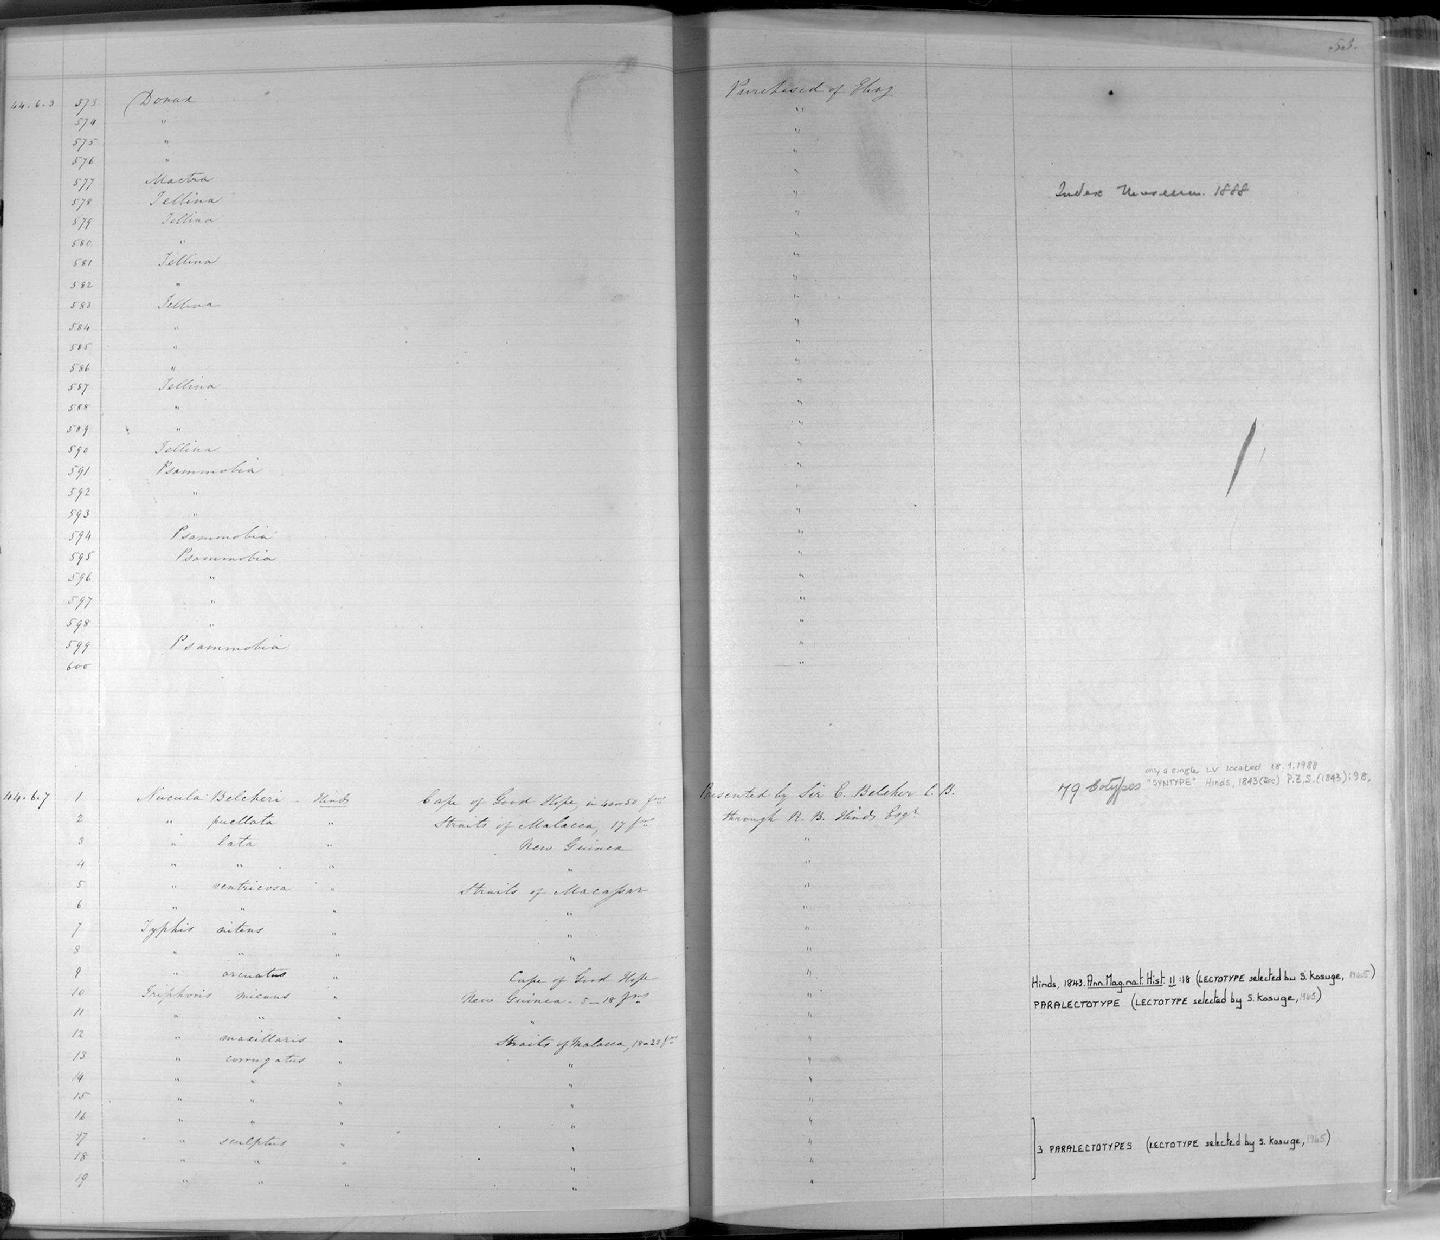 53.
44.6.3 573 Donax Purchased of
574 " "
575 " "
576 " "
577 Mactra "
578 Tellina " Index Museum. 1888
579 Tellina "
580 " "
581 Tellina "
582 " "
583 Tellina "
584 " "
585 " "
586 " "
587 Tellina "
588 " "
589 " "
590 Tellina "
591 Psammobia "
592 " "
593 " "
594 Psammobia "
595 Psammobia "
596 " "
597 " "
598 " "
599 Psammobia "
600 "
only a single LV located 18.1.1988
"SYNTYPE" Hinds, 1843 (Dec) P.Z.S. (1843): 98.
44.6.7 1 Nucula Belcheri - Hinds Cape of Good Hope, in 40-50 fms Presented by Sir E. Belcher C.B. ?9 Cotypes
2 " puellata " Straits of Malacca, 17 fms through R. B. Hinds Esqr
3 " lata " New Guinea "
4 " " " " "
5 " ventricosa " Straits of Macassar "
6 " " " " "
7 Typhis nitens " " "
8 " " " " "
9 " arcuatus " Cape of Good Hope " Hinds, 1843. Ann. Mag. nat. Hist. 11:18 (LECTOTYPE selected by S. Kosuge, 1965)
10 Triphoris micans " New Guinea - 5-18 fms " PARALECTOTYPE (LECTOTYPE selected by S. Kosuge, 1965)
11 " " " " "
12 " maxillaris " Straits of Malacca, 18-22 fms "
13 " corrugatus " " "
14 " " " " "
15 " " " " "
16 " " " " "
17 " sculptus " " " 3 PARALECTOTYPES (LECTOTYPE selected by S. Kosuge, 1965)
18 " " " " "
19 " " " " "